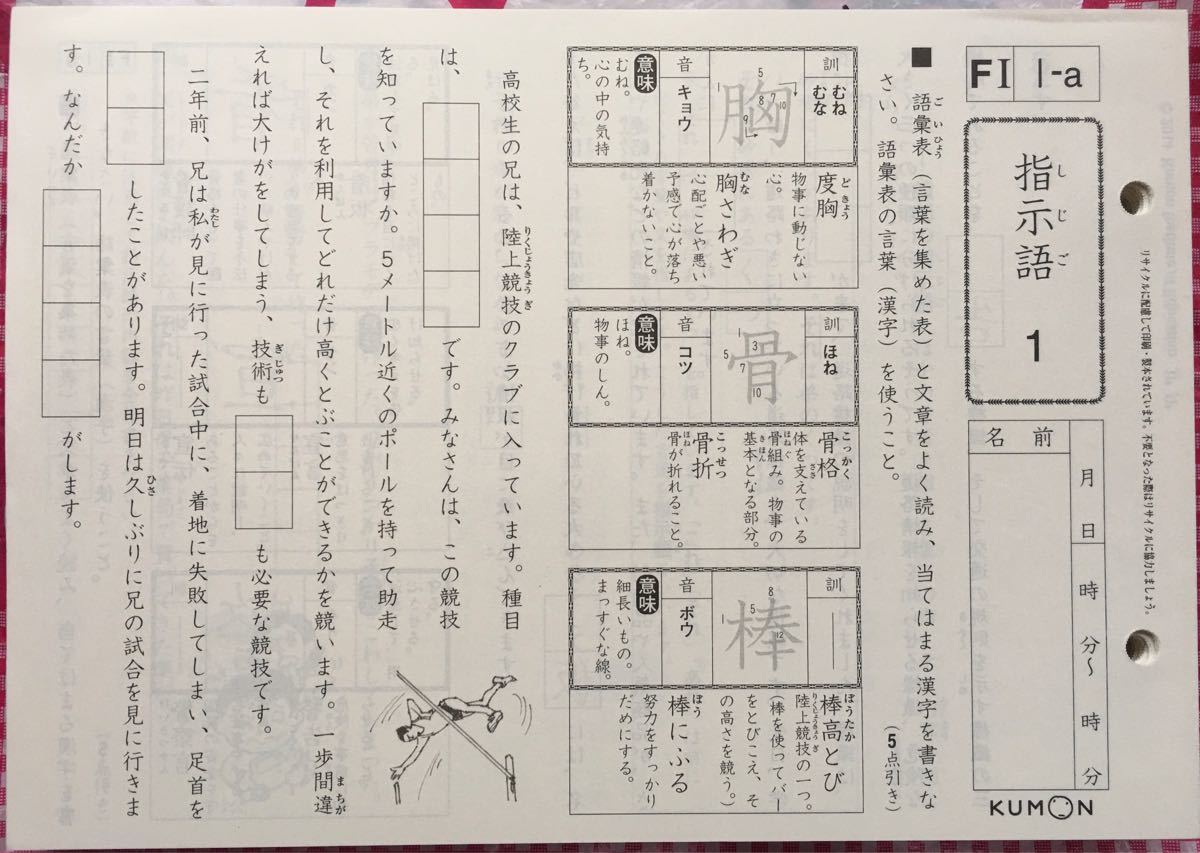 FⅠ 1-a
指示語 1
しじご
月 日
時 分〜 時 分
名前
KUMON
リサイクルに配慮して印刷・製本されています。不要となった際はリサイクルに協力しましょう。
■ 語彙表(言葉を集めた表)と文章をよく読み、当てはまる漢字を書きな
ごいひょう
さい。語彙表の言葉(漢字)を使うこと。
(5点引き)
訓 むね
むな
胸
1 5 7 8 9 10
音 キョウ
意味
むね。
心の中の気持
ち。
度胸
どきょう
物事に動じない
心。
胸さわぎ
むな
心配ごとや悪い
予感で心が落ち
着かないこと。
訓 ほね
骨
1 3 5 7 10
音 コツ
意味
ほね。
物事のしん。
骨格
こっかく
体を支えている
ささ
骨組み。物事の
ほねぐ
基本となる部分。
きほん
骨折
こっせつ
骨が折れること。
ほね
訓 ―
棒
1 5 8 12
音 ボウ
意味
細長いもの。
まっすぐな線。
棒高とび
ぼうたか
陸上競技の一つ。
りくじょうきょうぎ
(棒を使ってバー
をとびこえ、そ
の高さを競う。)
棒にふる
ぼう
努力をすっかり
だめにする。
高校生の兄は、陸上競技のクラブに入っています。種目
りくじょうきょうぎ
は、 です。みなさんは、この競技
を知っていますか。5メートル近くのポールを持って助走
し、それを利用してどれだけ高くとぶことができるかを競います。一歩間違
まちが
えれば大けがをしてしまう、技術も も必要な競技です。
ぎじゅつ
二年前、兄は私が見に行った試合中に、着地に失敗してしまい、足首を
わたし
したことがあります。明日は久しぶりに兄の試合を見に行きま
ひさ
す。なんだか がします。